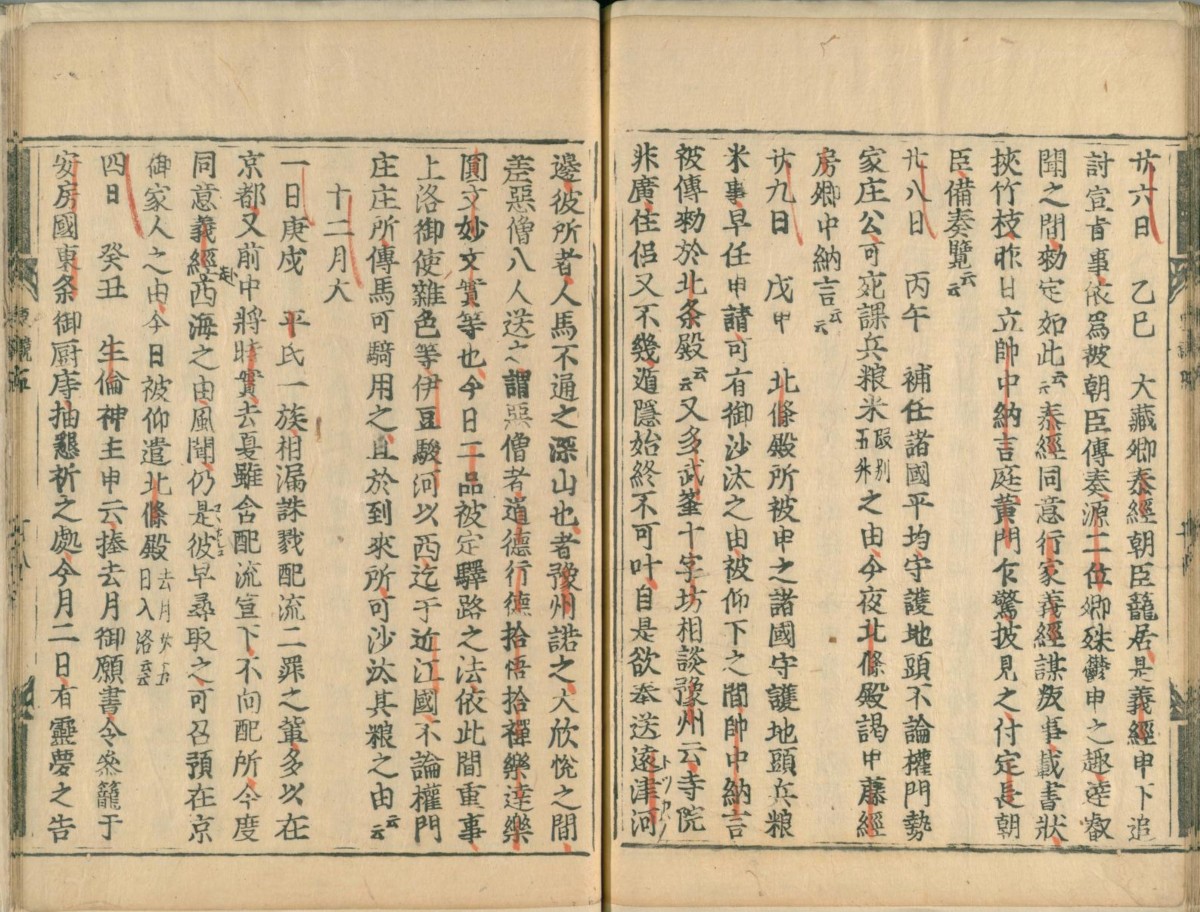 廿六日 乙巳 大藏卿泰經朝臣籠居是義經申下追
討宣旨事依爲彼朝臣傳奏源二位卿殊欝申之趣達叡
聞之間勅定如此云云泰經同意行家義經謀反事載書狀
挾竹枝昨日立帥中納言庭黄門乍驚披見之付定長朝
臣備奏覽云云
廿八日 丙午 補任諸國平均守護地頭不論權門勢
家庄公可宛課兵粮米段別五升之由今夜北條殿謁申藤經
房卿中納言云云
廿九日 戊申 北條殿所被申之諸國守護地頭兵粮
米事早任申請可有御沙汰之由被仰下之間帥中納言
被傳勅於北条殿云云又多武峯十字坊相談豫州云寺院
非廣住侶又不幾遁隱始終不可叶自是欲奉送遠津河
トツカハノ
邊彼所者人馬不通之深山也者豫州諾之大欣悅之間
差惡僧八人送之謂惡僧者道德行德拾悟拾禪樂達樂
圓文妙文實等也今日二品被定驛路之法依此間重事
上洛御使雜色等伊豆駿河以西迄于近江國不論權門
庄庄所傳馬可騎用之且於到來所可沙汰其粮之由云云
十二月大
一日庚戌 平氏一族相漏誅戮配流二罪之輩多以在
京都又前中將時實去夏雖含配流宣下不向配所今度
同意義經赴西海之由風聞仍是彼早尋取之可召預在京
御家人之由今日被仰遣北條殿去月廿五日入洛云云
四日 癸丑 生倫神主申云捧去月御願書令參籠于
安房國東条御厨庤抽懇祈之處今月二日有靈夢之告